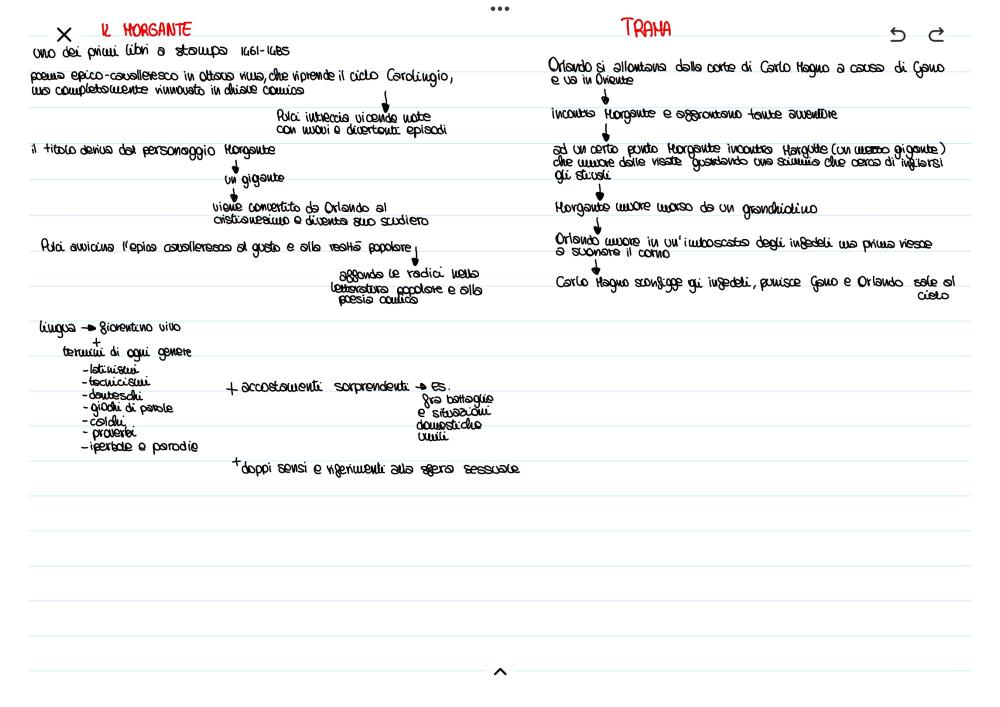 IL MORGANTE
uno dei primi libri a stampa 1461-1485
poema epico-cavalleresco in ottava rima, che riprende il ciclo Carolingio,
ma completamente rinnovato in chiave comica
Pulci intreccia vicende note
con nuovi e divertenti episodi
il titolo deriva dal personaggio Morgante
un gigante
viene convertito da Orlando al
cristianesimo e diventa suo scudiero
Pulci avvicina l'epica cavalleresca al gusto e alla realtà popolare
affonda le radici nella
letteratura popolare e alla
poesia comica
lingua → fiorentino vivo
+
termini di ogni genere
- latinismi
- tecnicismi
- danteschi
- giochi di parole
- calchi
- proverbi
- iperbole e parodie
+ accostamenti sorprendenti → es.
fra battaglie
e situazioni
domestiche
umili
+ doppi sensi e riferimenti alla sfera sessuale
TRAMA
Orlando si allontana dalla corte di Carlo Magno a causa di Gano
e va in Oriente
incontra Morgante e affrontano tante avventure
ad un certo punto Morgante incontra Margutte (un mezzo gigante)
che muore dalle risate guardando una scimmia che cerca di infilarsi
gli stivali
Morgante muore morso da un granchiolino
Orlando muore in un'imboscata degli infedeli ma prima riesce
a suonare il corno
Carlo Magno sconfigge gli infedeli, punisce Gano e Orlando sale al
cielo